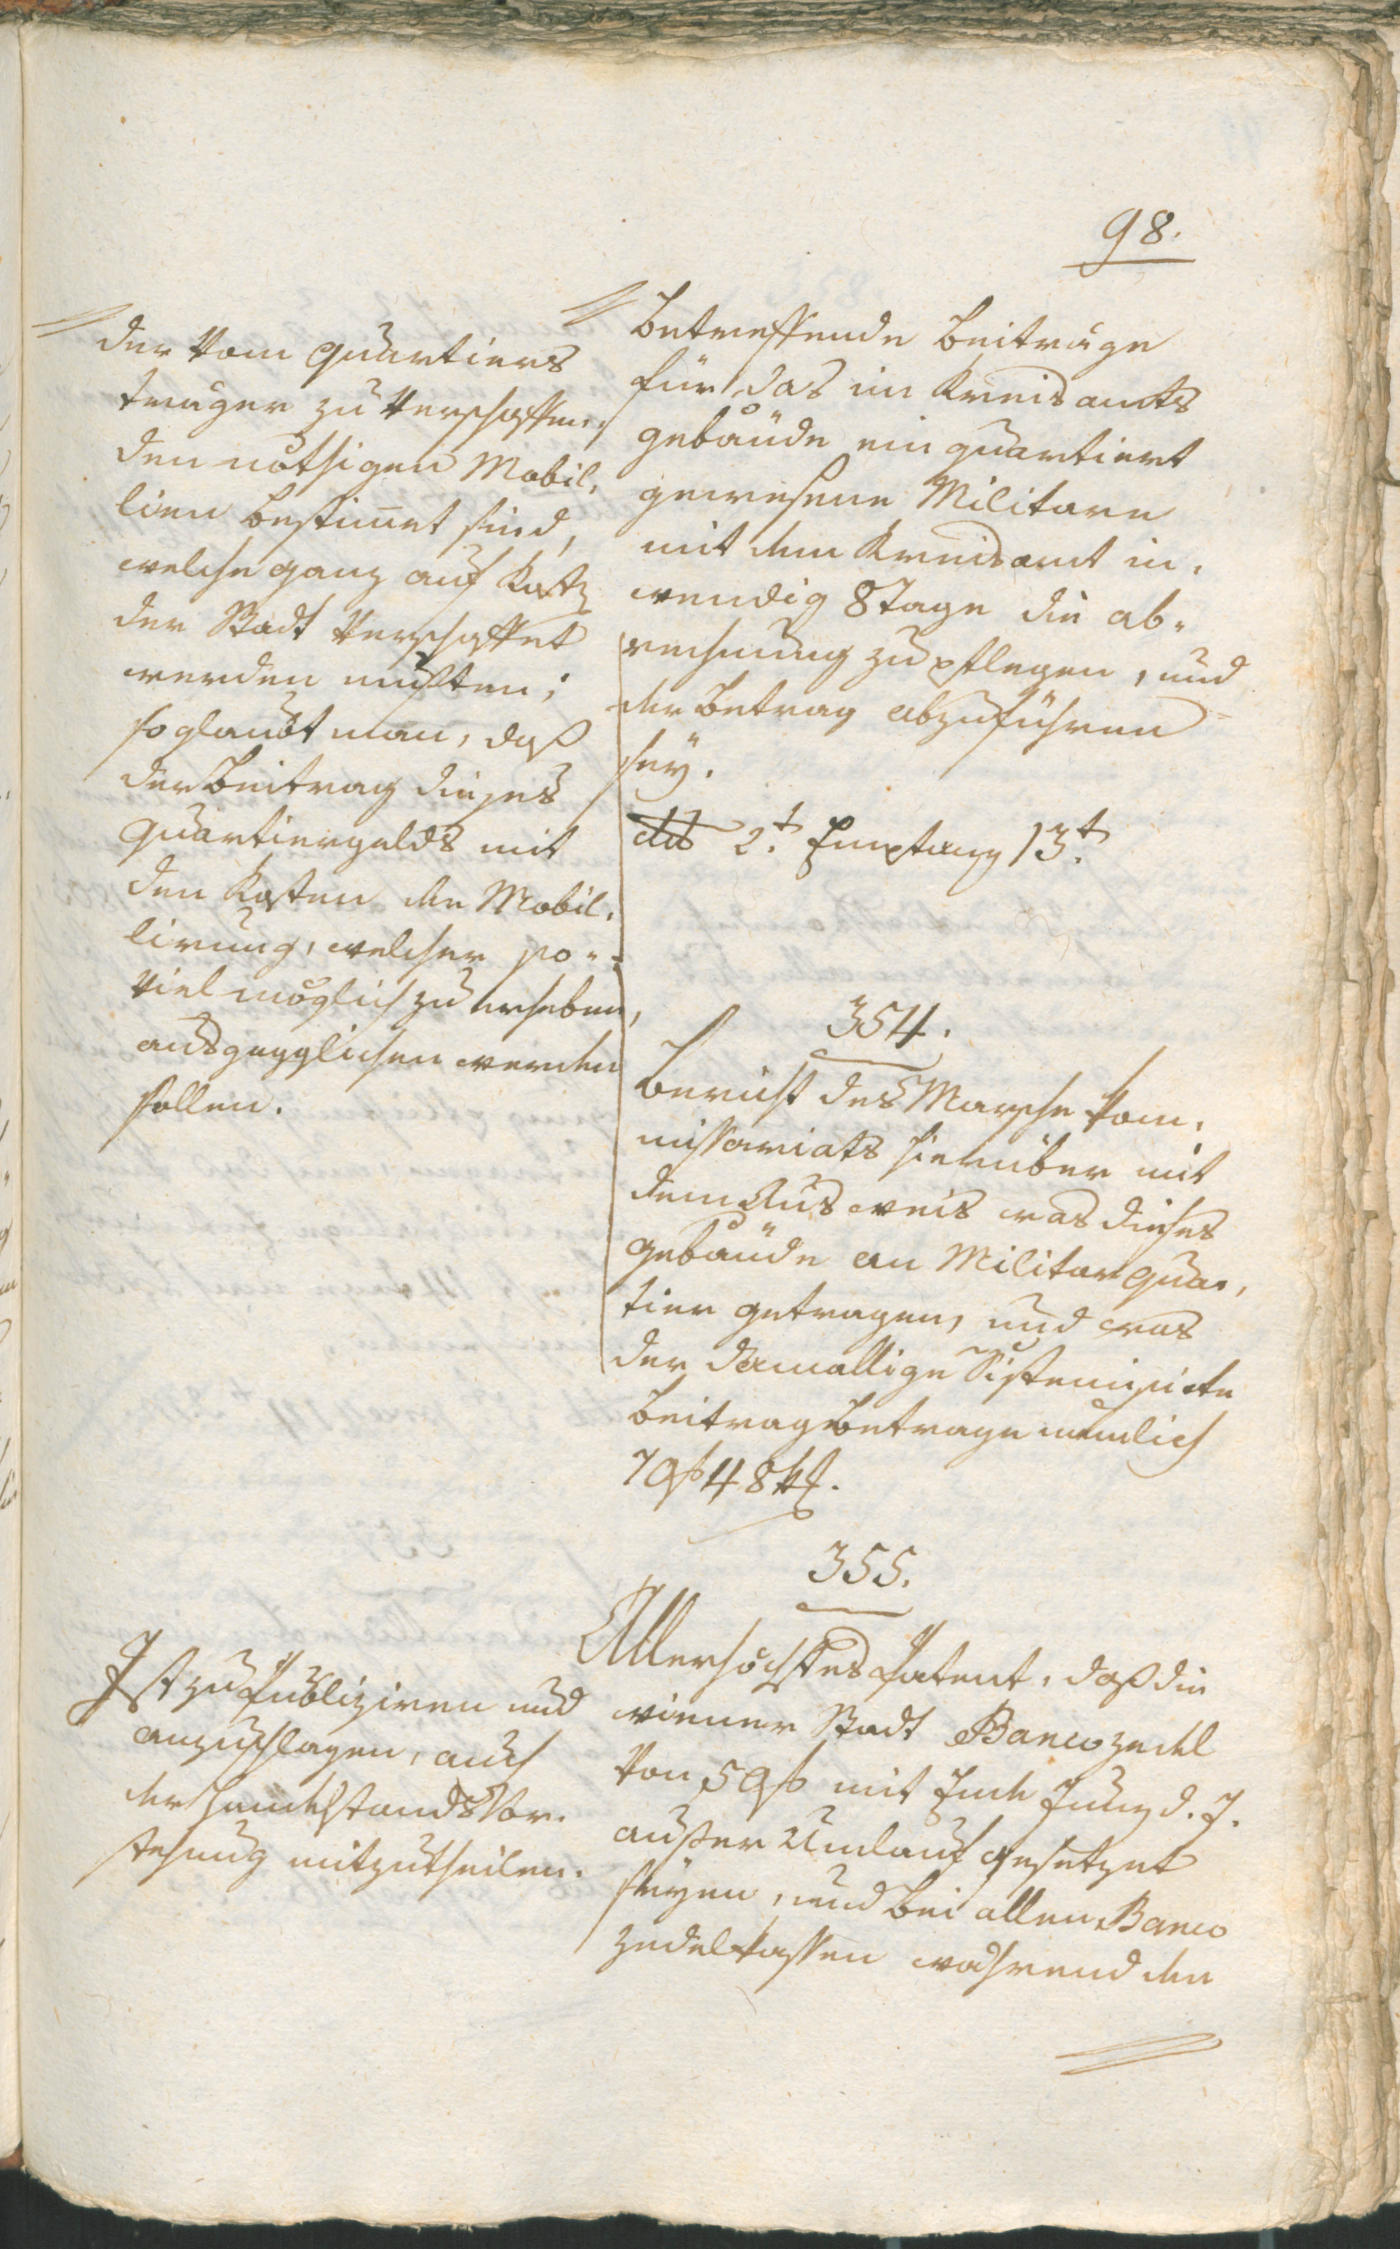 98.
der vom Quartiers
trager zu verschaffen,
den nöthigen Mobil,
lien bestimet sind,
welche ganz auf Kosten
der Stadt verschaffet
werden mußten;
so glaubt man, daß
der Beitrag dieses
Quartiergelds mit
den Kosten der Mobil,
lirung, welcher so-
viel möglich zu erheben,
ausgegglichen werden
sollen.
betreffende Beitrage
für das im Kreisamts
gebäude ein quartiert
gewesene Militare
mit dem Kreisamt in,
wendig 8 Tage die ab-
rechnung zu pflegen, und
der Betrag abzuführen
seÿ.
dto 2t. Empfang 13t.
354.
Bericht des Marsche Kom,
missariats hierüber mit
dem Ausweis was dieses
gebäude an Militar Quar,
tier getragen, und was
der damallige Sistemisirte
Beitrag betrage nemlich
7 f 48 xr.
355.
Allerhöchstes Patent, daß die
wiener Stadt Bancozedel
von 5 f mit Ende Juny d. J.
außer Umlauf gesetzet
seÿen, und bei allen Banco
zedelkassen während den
Ist zu Publiziren und
anzuschlagen, auch
der Handelstands Vor,
stehung mitzutheilen.